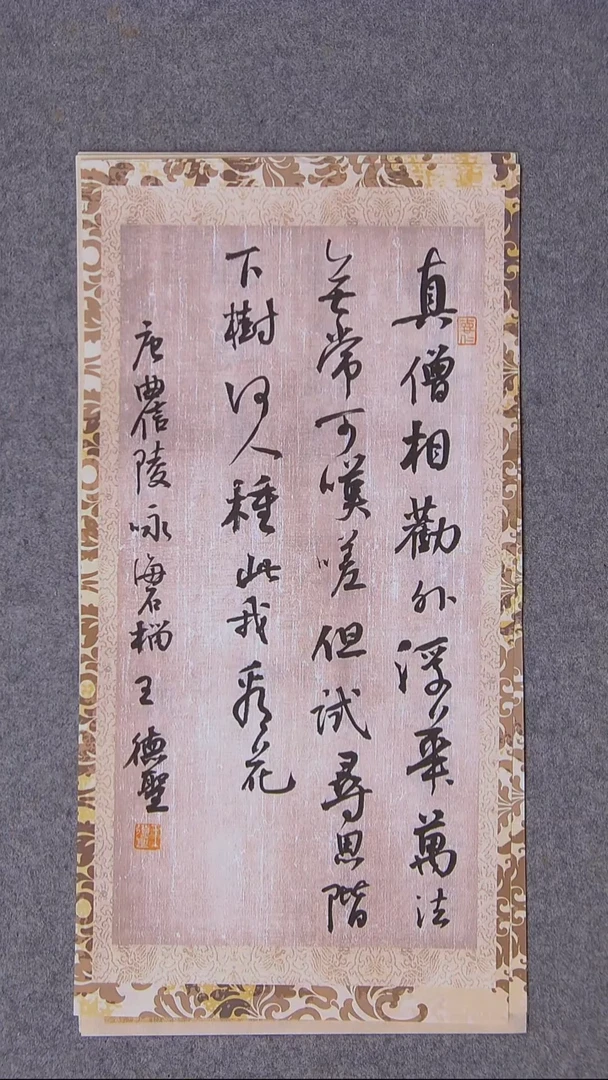 真僧相勸外浮華萬法
無常可嘆嗟但試尋思階
下樹何人種此我看花
唐曲信陵咏海石榴王德聖